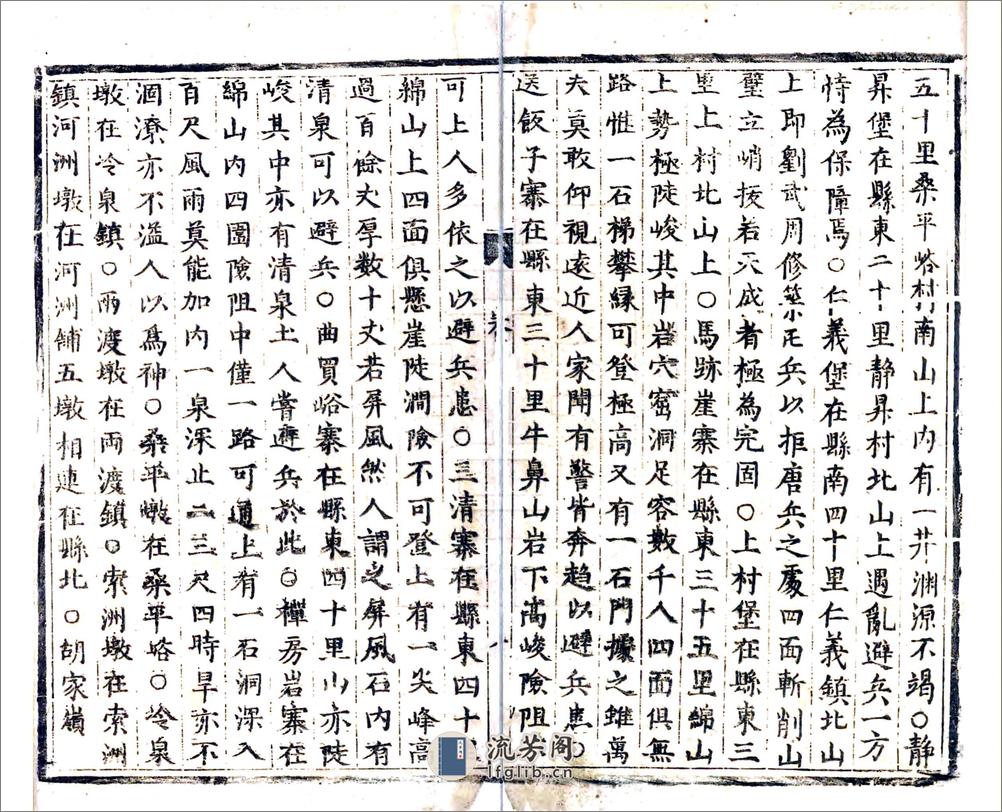 五十里桑平峪村南山上内有一井渊源不竭〇靜
昇堡在縣東二十里靜昇村北山上遇亂避兵一方
恃為保障焉〇仁義堡在縣南四十里仁義鎮北山
上即劉武周修築屯兵以拒唐兵之處四面斬削山
壁立峭拔若天成者極為完固〇上村堡在縣東三
里上村北山上〇馬跡崖寨在縣東三十五里綿山
上勢極陡峻其中岩穴窑洞足容數千人四面俱無
路惟一石梯攀緣可登極高又有一石門據之雖萬
夫莫敢仰視遠近人家聞有警皆奔趨以避兵患〇
送飯子寨在縣東三十里牛鼻山岩下嵩峻險阻
可上人多依之以避兵患〇三清寨在縣東四十里
綿山上四面俱懸崖陡澗險不可登上有一尖峰高
過百餘丈厚數十丈若屏風然人謂之屏風石内有
清泉可以避兵〇曲買峪寨在縣東四十里山亦陡
峻其中亦有清泉土人嘗避兵於此〇禪房岩寨在
綿山内四圍險阻中僅一路可通上有一石洞深入
百尺風雨莫能加内一泉深止二三尺四時旱亦不
涸潦亦不溢人以為神〇桑平墩在桑平峪〇冷泉
墩在冷泉鎮〇兩渡墩在兩渡鎮〇索洲墩在索洲
鎮河洲墩在河洲鋪五墩相連在縣北〇胡家嶺
卷
八
流芳阁
lfglib.cn